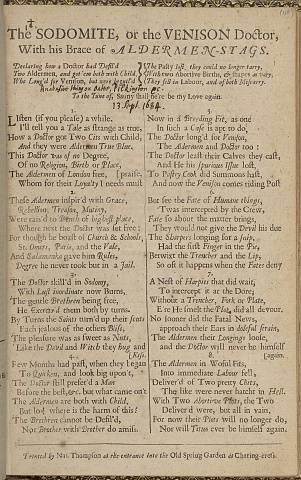 The SODOMITE, or the VENISON Doctor,
With his Brace of ALDERMEN-STAGS.
Declaring how a Doctor had Defil'd
Two Aldermen, and got em both with Child,
Who Long'd for Venison, but were beguil'd
The Pasty lost, they could no longer tarry,
With two Abortive Births, &
They fell in Labour, and of both Miscarry.
To the Tune of, Saving shall be my Love again.
13. Sept. 1684.
1.
Listen (if you please) a while,
I'll tell you a Tale as strange as true,
How a Doctor got Two Cits with Child,
And they were Aldermen True Blue,
This Doctor was of no Degree,
Of no Religion, Birth or Place,
The Aldermen of London free, [praise,
Whom for their Loyalty I needs must
2.
These Aldermen inspir'd with Grace,
Rebellion, Treason, Mutiny,
Were rais'd to th' Bench of highest place,
Where next the Doctor was set free;
For though he boast of Church & Schools,
St. Omers, Paris, and the Vale,
And Salamanka gave him Rules,
Degree he never took but in a Jail.
3.
The Doctor skill'd in Sodomy,
With Lust inordinate now Burns,
The gentle Brethren being free,
He Exercis'd them both by turns.
By Turns the Saints turn'd up their
Each jealous of the others Bliss,
The pleasure was as sweet as Nuts,
Like the Devil and Witch they hug and
[Kiss.
4.
Few Months had past, when they began
To Quicken, and look big upon't,
The Doctor still prefer'd a Man
Before the best, &c. but what came on't
The Aldermen are both with Child,
But lo! where is the harm of this?
The Brethren cannot be Defil'd,
Nor Brother with Brother do amiss.
5.
Now in a Breeding Fit, as one
In such a Case is apt to do,
The Doctor long'd for Venison,
The Aldermen and Doctor too:
The Doctor least their Calves they cast,
And He his spurious Issue lost,
To Pastry Cook did Summons hast,
And now the Venison comes riding Post
6.
But see the Fate of Humane things,
'Twas intercepted by the Crew,
Fate so about the matter brings,
They would not give the Devil his due
The Sharpers longing for a sup,
Had the first Finger in the Pie,
Betwixt the Trencher and the Lip,
So oft it happens when the Fates deny
7.
A Nest of Harpies that did wait,
To intercept it at the Dore,
Without a Trencher, Fork or Plate,
E're He smelt the Pie, did all devour,
No sooner did the Fatal News,
approach their Ears in doleful strain,
The Aldermen their Longings loose,
and the Doctor will never be himself
[again.
8.
The Aldermen in Woful Fits,
Into immediate Labour fell,
Deliver'd of Two pretty Chits,
The like were never hatcht in Hell.
With Two Abortive Plots, the Two
Deliver'd were, but all in vain,
For now their Plots will no longer do,
Nor will Titus ever be himself again.
Printed by Nat. Thompson at the entrance into the Old Spring Garden at Charing-cross.